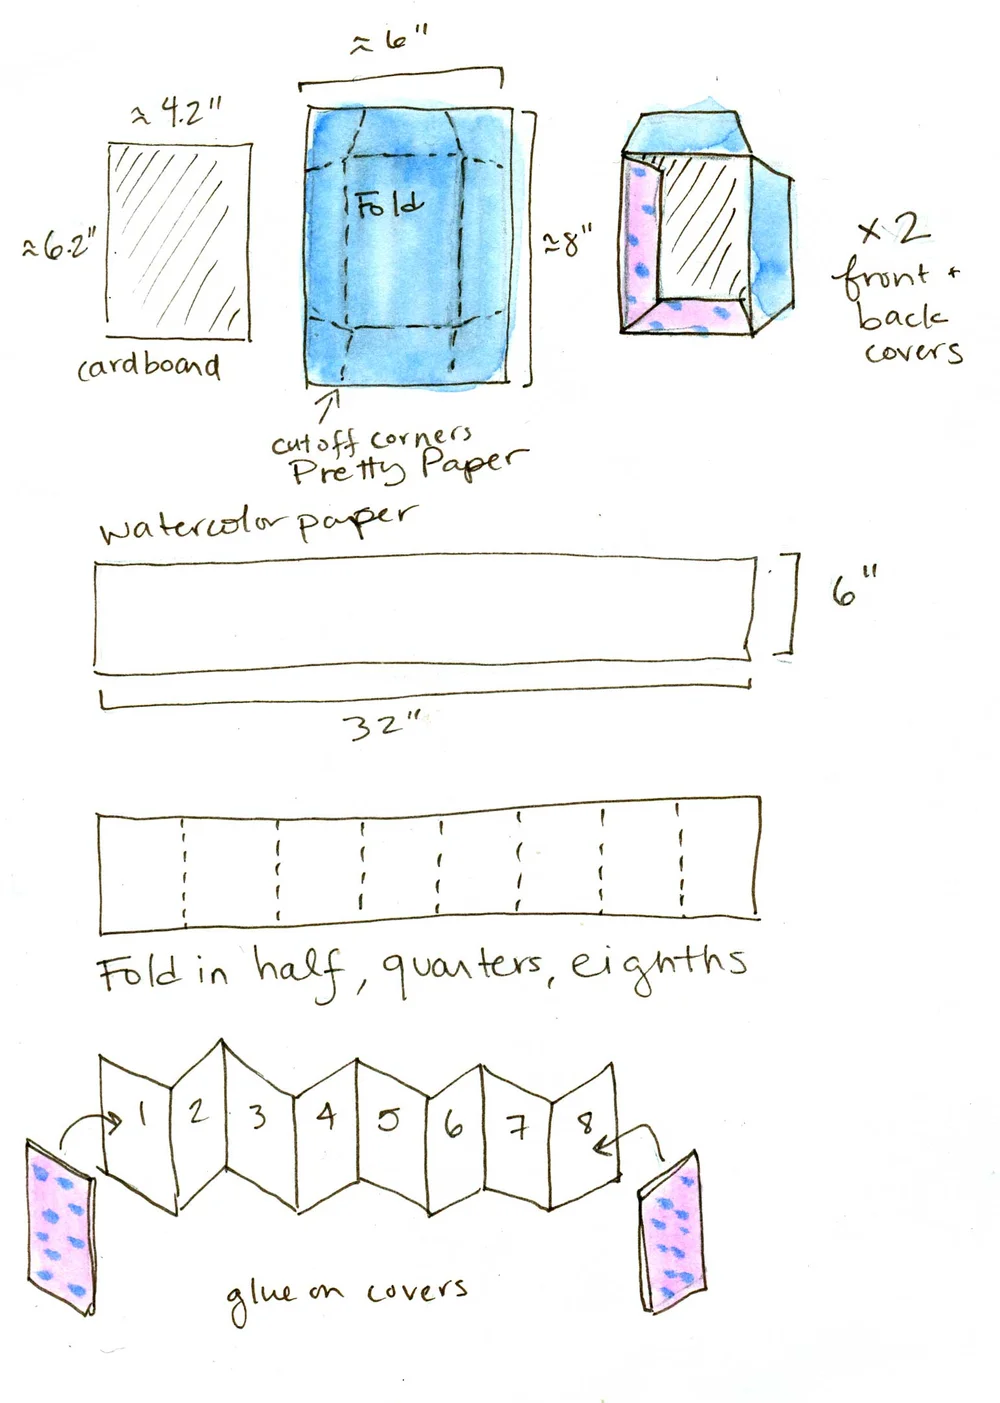 ≈ 6"
≈ 4.2"
≈6.2"
Fold
≈8"
cardboard
cut off corners
Pretty Paper
x 2
front +
back
covers
watercolor paper
6"
32"
Fold in half, quarters, eignths
1 2 3 4 5 6 7 8
glue on covers